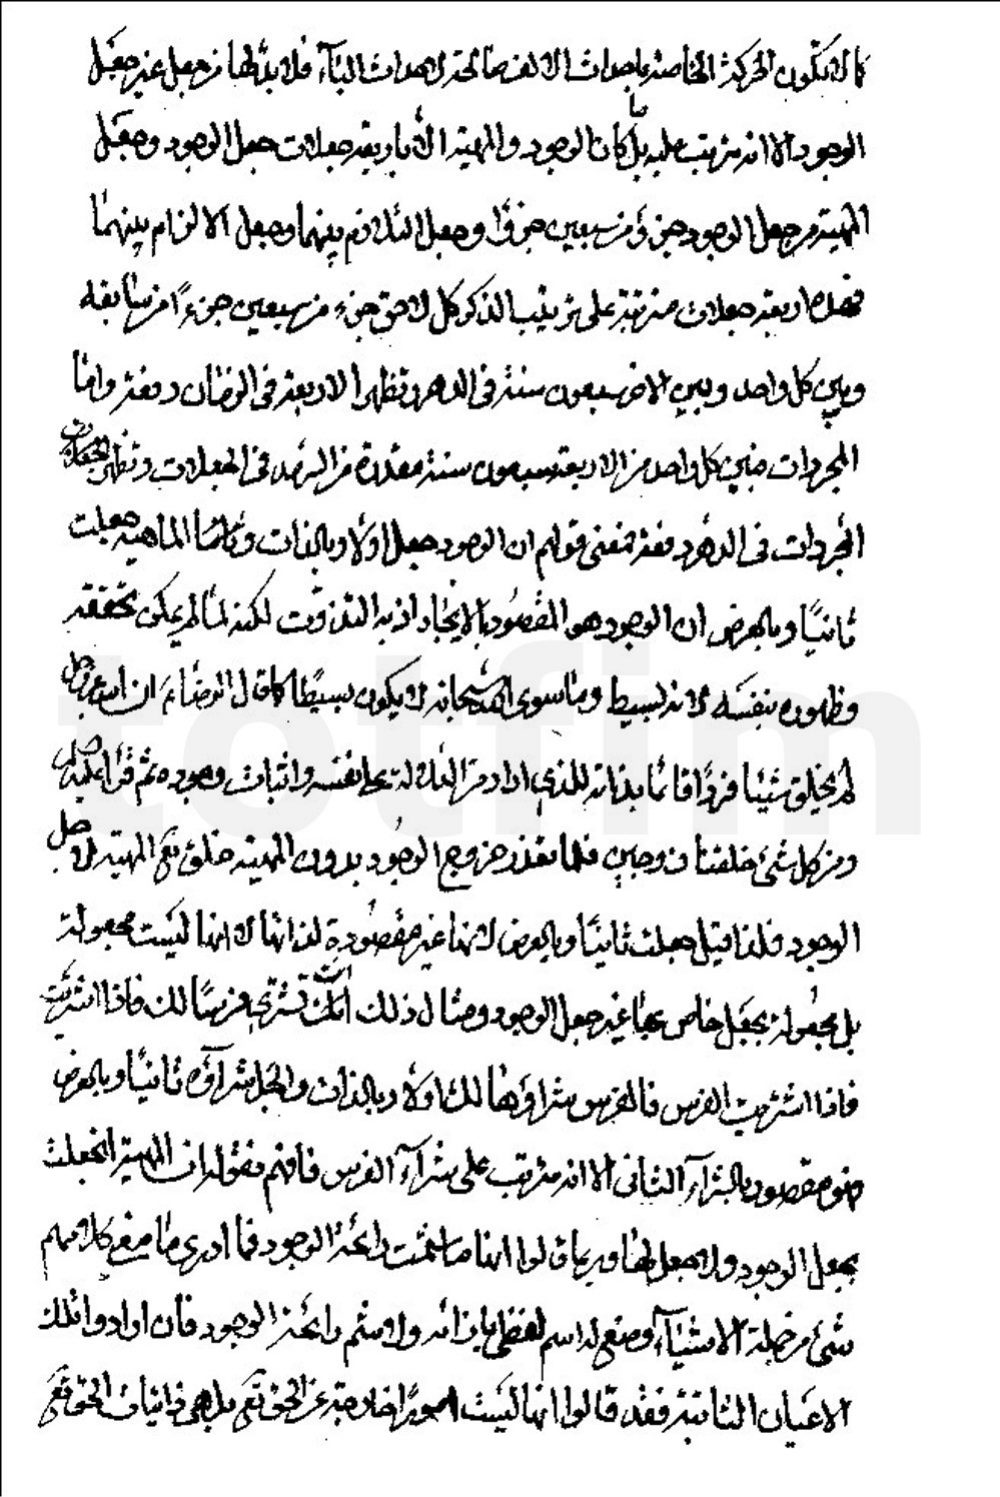 كما لا تكون الحركة الخاصة باحداث الالف صالحة لاحداث الباء فلا بد لها من جعل غير جعل
الوجود الا انه مترتب عليه بل كان الوجود والمهية لا بأربعة جعلات جعل الوجود وجعل
المهية من جعل الوجود جزؤ من سبعين جزؤا وجعل التلازم بينهما وجعل الالزام بينهما
فهذه اربعة جعلات مترتبة على ترتيب الذكر كل لاحق جزء من سبعين جزءا من سابقه
وبين كل واحد وبين الاخر سبعون سنة في الدهر وتظهر الاربعة في الزمان دفعة واما
المجردات فبين كل واحد من الاربعة سبعون سنة مقدرة من السرمد في الجعلات وتظهر الجعلات
المجردات في الدهر دفعة فمعنى قولهم ان الوجود جعل اولا وبالذات وانما الماهية جعلت
ثانيا وبالعرض ان الوجود هو المقصود بالايجاد اذ به التذوت لكنه لما لم يمكن تحققه
وظهوره بنفسه لانه بسيط وما سوى الله سبحانه لا يكون بسيطا كما قال الرضا ع ان الله عز وجل
لم يخلق شيئا فردا قائما بذاته للذي اراد من الدلالة على نفسه واثبات وجوده ثم قرأ عليه السلم
ومن كل شئ خلقنا زوجين فلما تعذر خروج الوجود بدون المهية خلق تع المهية لاجل
الوجود فلذا قيل جعلت ثانيا وبالعرض لانها غير مقصودة لذاتها لا انها ليست مجعولة
بل مجعولة بجعل خاص بها غير جعل الوجود ومثال ذلك انك تشتري فرسا لك فاذا اشتريت
فاذا اشتريت الفرس فالفرس شراؤها لك اولا وبالذات والجل شراؤه ثانيا وبالعرض
فهو مقصود بالشراء الثاني الا انه مترتب على شراء الفرس فافهم فقولهم ان المهية انجعلت
بجعل الوجود ولا جعل لها وربما قالوا انها ما شمت رائحة الوجود فما ادري ما معنى كلامهم
شئ من جملة الاشياء وضع له اسم لفظي بازائه ولا يشم رائحة الوجود فان ارادوا تلك
الاعيان الثابتة فقد قالوا انها ليست امورا خارجة عن الحق تع بل هي ذاتيات الحق تع